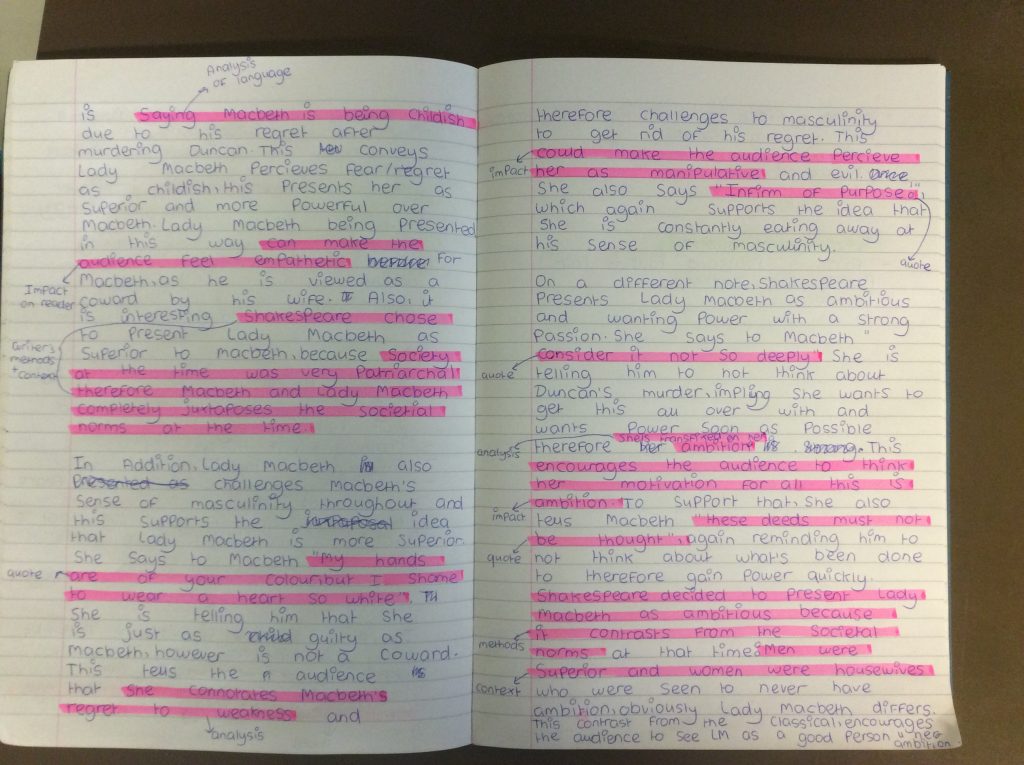 Analysis
of language
is Saying Macbeth is being childish
due to his regret after
murdering Duncan. This conveys
Lady Macbeth Percieves fear/regret
as childish, this Presents her as
superior and more Powerful over
Macbeth. Lady Macbeth being Presented
in this way can make the
audience feel empathetic for
Impact
on reader
Macbeth, as he is viewed as a
coward by his wife. Also, it
is interesting Shakespeare chose
to present Lady Macbeth as
writer's
methods
+
context
Superior to macbeth, because Society
at the time was very Patriarchal
therefore Macbeth and Lady Macbeth
completely juxtaposes the societial
norms at the time.
In Addition, Lady Macbeth is also
Presented as challenges Macbeth's
sense of masculinity throughout and
this supports the juxtaposal idea
that Lady Macbeth is more Superior.
She says to Macbeth "My hands
quote
are of your colour, but I shame
to wear a heart so white".
She is telling him that she
is just as guilty as
macbeth, however is not a coward.
This tells the audience
that she connotates Macbeth's
regret to weakness and
analysis
therefore challenges to masculinity
to get rid of his regret. This
could make the audience Percieve
impact
her as manipulative and evil. once
She also says "Infirm of Purpose",
which again supports the idea that
She is constantly eating away at
his sense of masculinity.
quote
On a different note, Shakespeare
Presents Lady Macbeth as ambitious
and wanting Power with a strong
Passion. She says to Macbeth "
consider it not so deeply". She is
quote
telling him to not think about
Duncan's murder, impling she wants to
get this all over with and
wants Power soon as Possible
she's transfixed on her
analysis
therefore her ambition is strong. This
encourages the audience to think
her motivation for all this is
impact
ambition. To support that, she also
tells Macbeth "these deeds must not
be thought", again reminding him to
quote
not think about what's been done
to therefore gain Power quickly.
Shakespeare decided to Present Lady
macbeth as ambitious because
methods
it contrasts from the societal
norms at that time: Men were
context
Superior and women were housewives
who were seen to never have
ambition, obviously Lady Macbeth differs.
This contrast from the classical, encourages
the audience to see LM as a good Person
ambition